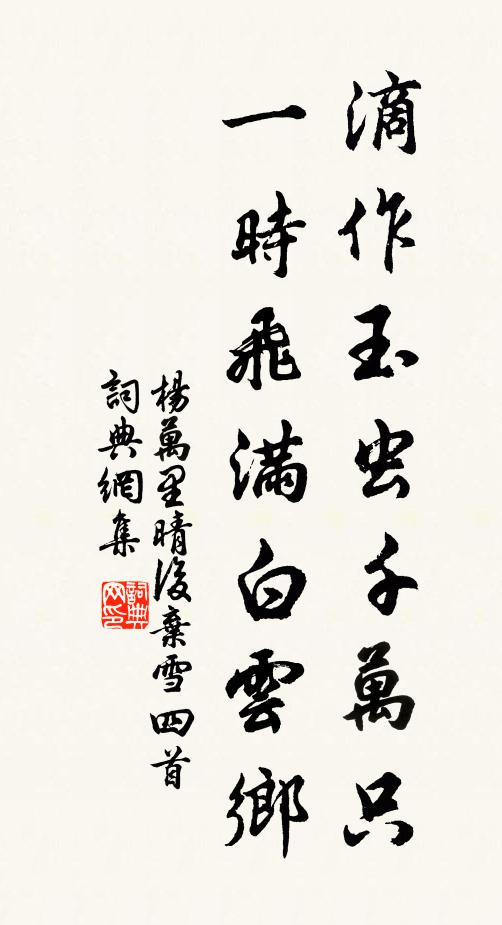 滴作玉虫千萬只
一時飛滿白雲鄉
楊萬里晴後棄雪四首
詞典網集
詞典网印